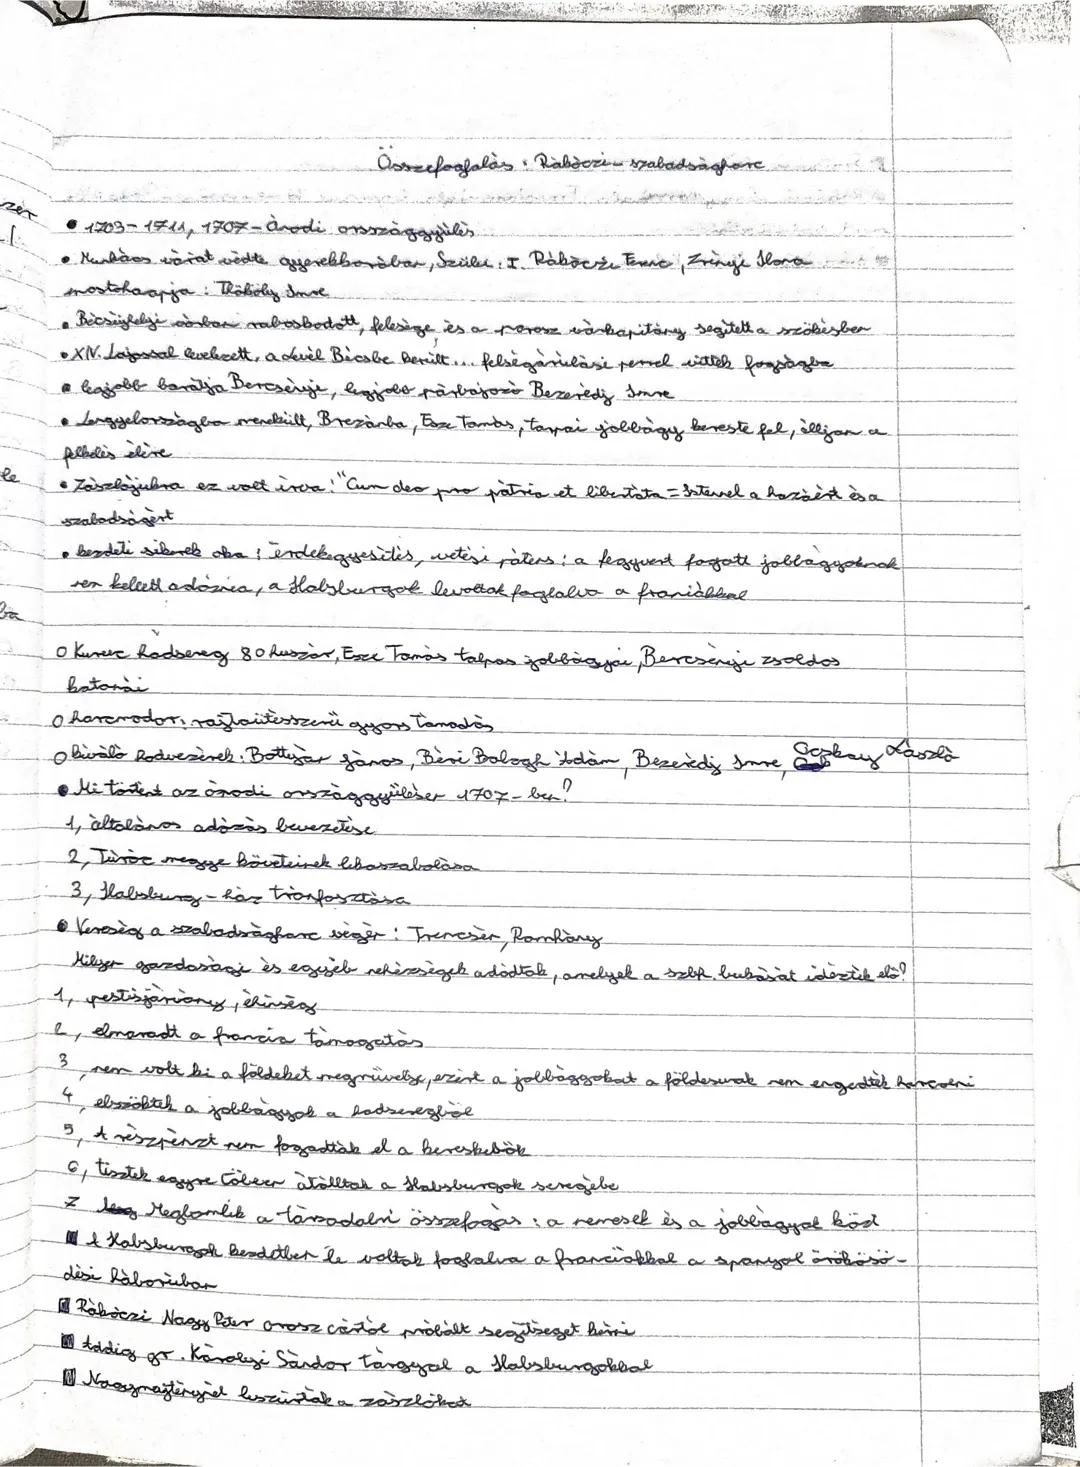 Összefoglalás: Rákóczi-szabadságharc
zer
• 1703-1711, 1707-ónodi országgyűlés
• Munkács várat védte gyerekkorában, Szülei: I. Rákóczi Ferenc, Zrínyi Ilona
mostohaapja: Thököly Imre
• Bécsújhelyi várban raboskodott, felesége és a porosz várkapitány segített a szökésben
• XIV. Lajossal levelezett, a levél Bécsbe került... felségárulási perrel vitték fogságba
• legjobb barátja Bercsényi, legjobb párbajozó Bezerédj Imre
• Lengyelországba menekült, Brezánba, Esze Tamás, tarpai jobbágy kereste fel, álljon a
felkelés élére
le
• Zászlójukra ez volt írva: "Cum deo pro pátria et libertáta = Istennel a hazáért és a
szabadságért
• kezdeti sikerek oka: érdekegyesítés, vetési pátens: a fegyvert fogott jobbágyoknak
nem kellett adóznia, a Habsburgok le voltak foglalva a franciákkal
ba
o Kuruc hadsereg 80 huszár, Esze Tamás talpas jobbágyai, Bercsényi zsoldos
katonái
o harcmodor: rajtaütésszerű gyors támadás
o kiváló hadvezérek: Bottyán János, Béri Balogh Ádám, Bezerédj Imre, Ocskay László
• Mi történt az ónodi országgyűlésen 1707-ben?
1, általános adózás bevezetése
2, Túróc megye követeinek lekaszabolása
3, Habsburg-ház trónfosztása
• Vereség a szabadságharc végén: Trencsén, Romhány
Milyen gazdasági és egyéb nehézségek adódtak, amelyek a szbh. bukását idézték elő?
1, pestisjárvány, éhínség
2, elmaradt a francia támogatás
3, nem volt ki a földeket megművelje, ezért a jobbágyokat a földesurak nem engedték harcolni
4, elszöktek a jobbágyok a hadseregből
5, A rézpénzt nem fogadták el a kereskedők
6, tisztek egyre többen átálltak a Habsburgok seregébe
7 Megromlik a társadalmi összefogás: a nemesek és a jobbágyok közt
A Habsburgok kezdetben le voltak foglalva a franciákkal a spanyol örökösö-
dési háborúban
Rákóczi Nagy Péter orosz cártól próbált segítséget kérni
Addig gr. Károlyi Sándor tárgyal a Habsburgokkal
Nagymajténynál leszúrták a zászlókat